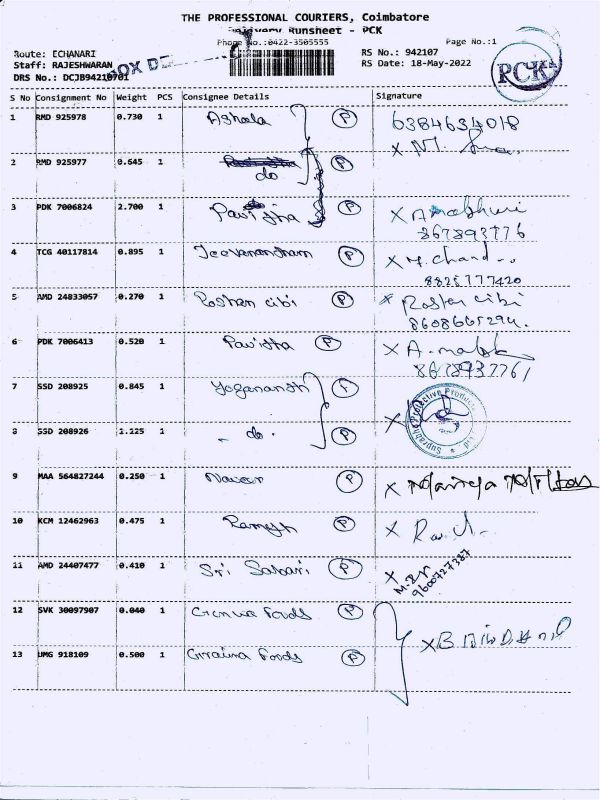 THE PROFESSIONAL COURIERS, Coimbatore
Delivery Runsheet - PCK
Phone No.:0422-3505555
Page No.:1
Route: ECHANARI
RS No.: 942107
Staff: RAJESHWARAN
RS Date: 18-May-2022
DRS No.: DCJB94210701
PCK
S No Consignment No Weight PCS Consignee Details Signature
1 RMD 925978 0.730 1 P 6384634018
2 RMD 925977 0.645 1 do P
3 PDK 7006824 2.700 1 Pavisha P
4 TCG 40117814 0.895 1 Jeevanandham P X M. Chand
8825777420
5 AMD 24833057 0.270 1 Roshan cibi P
8608665294.
6 PDK 7006413 0.520 1 Pavisha P
7 SSD 208925 0.845 1 Yoganandh P
8 SSD 208926 1.125 1 - do - P
Suprabha Protective Products
9 MAA 564827244 0.250 1 Naveen P
10 KCM 12462963 0.475 1 Ramesh P
11 AMD 24407477 0.410 1 Sri Sabari P
9600727387
12 SVK 30097907 0.040 1 Foods P
13 UMG 918109 0.500 1 Foods P